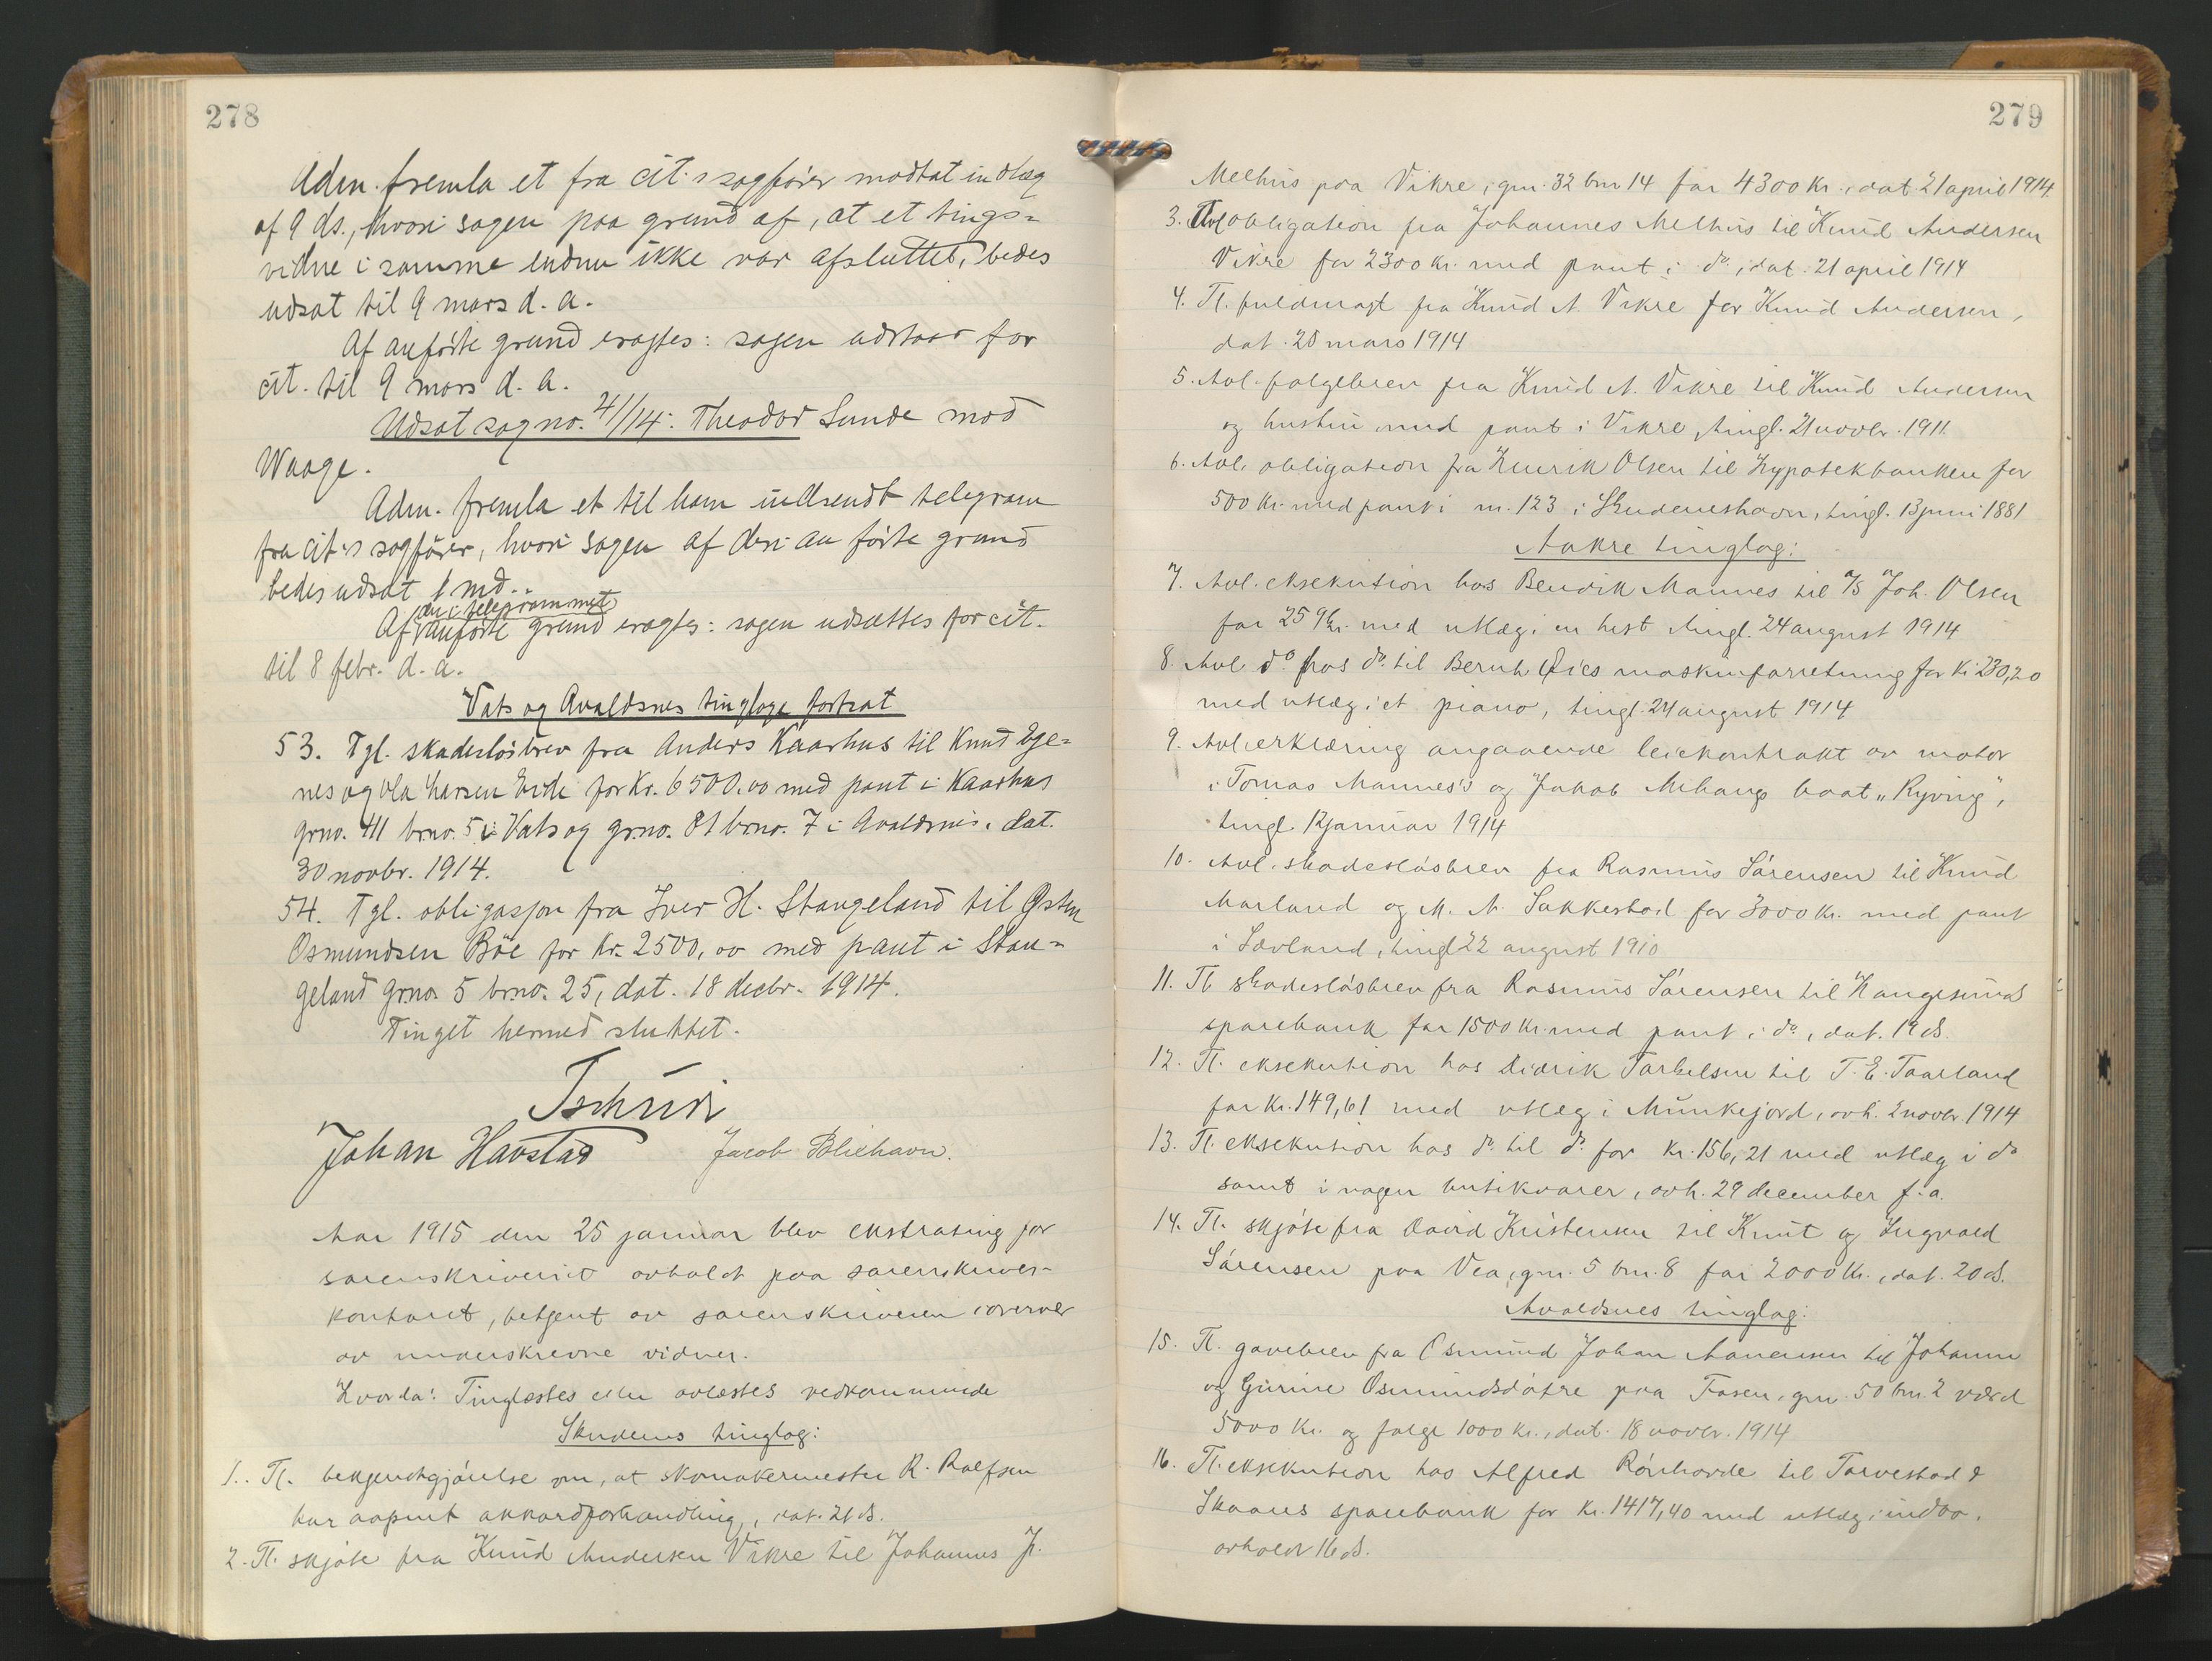 278
Adm. fremla et fra cit.s sagfører modtat indlæg
af 9 ds., hvori sagen paa grund af, at et tings=
vidne i samme endnu ikke var afsluttet, bedes
udsat til 9 mars d. a.
Af anførte grund eragtes: sagen udstaar for
cit. til 9 mars d. a.
Udsat sag no. 41/14: Theodor Sunde mod
Waage.
Adm. fremla et til ham indsendt telegram
fra cit.s sagfører, hvori sagen af deri anførte grund
bedes udsat 1 md..
den i telegrammet
Af anførte grund eragtes: sagen udsættes for cit.
til 8 febr. d. a.
Vats og Avaldsnes tinglage fortsat
53. Tgl. skadesløsbrev fra Anders Kaarhus til Knut Eje=
nes og Ola Larsen Eide for Kr. 6500.00 med pant i Kaarhus
grno. 41 brno. 5 i Vats og grno. 81 brno. 7 i Avaldsnes. dat.
30 novbr. 1914.
54. Tgl. obligasjon fra Iver H. Stangeland til Østen
Osmundsen Böe for Kr. 2500,00 med pant i Stan=
geland grno. 5 brno. 25, dat. 18 decbr. 1914.
Tinget hermed sluttet.
Tschudi
Johan Havstad Jacob Bliehavn.
Aar 1915 den 25 januar blev ekstrating for
sorenskriveriet avholdt paa sorenskriver-
kontoret, betjent av sorenskriveren i overvær
av underskrevne vidner.
Hvorda: Tinglæstes eller avlæstes vedkommende
Skudenes tinglag:
1. Tl. bekjendtgjørelse om, at skomakermester R. Rolfsen
har aapnet akkordforhandling, dat. 21 ds.
2. Tl. skjøte fra Knud Andersen Vikre til Johannes J.
279
Melhus paa Vikre, gnr. 32 bnr 14 for 4300 Kr., dat. 21 april 1914
3. Avl obligation fra Johannes Melhus til Knud Andersen
Vikre for 2300 Kr. med pant i do, dat. 21 april 1914
4. Tl. fuldmagt fra Knud A. Vikre for Knud Andersen,
dat. 25 mars 1914
5. Avl. følgebrev fra Knud A. Vikre til Knud Andersen
og hustru med pant i Vikre, tingl. 21 novbr. 1911.
6. Avl. obligation fra Henrik Olsen til Hypotekbanken for
500 Kr. med pant i nr. 123 i Skudeneshavn, tingl. 13 juni 1881
Aakre tinglag:
7. Avl. eksekution hos Bendik Mannes til A/S Joh. Olsen
for 259 Kr. med utlæg i en hest tingl. 24 august 1914
8. Avl do hos do til Bernh Øies maskinforretning for Kr 230,20
med utlæg i et piano, tingl. 24 august 1914
9. Avl erklæring angaaende leiekontrakt av motor
i Tomas Mannes's og Jakob Mihaugs baat „Ryving",
tingl. 12 januar 1914
10. Avl. skadesløsbrev fra Rasmus Sørensen til Knud
Marland og M. A. Sakkestad for 3000 Kr. med pant
i Sævland, tingl 22 august 1910
11. Tl. skadesløsbrev fra Rasmus Sørensen til Haugesunds
sparebank for 1500 Kr. med pant i do, dat. 19 ds.
12. Tl. eksekution hos Didrik Torbelsen til T. E. Taarland
for Kr. 149,61 med utlæg i Munkejord, avh. 2 novbr. 1914
13. Tl eksekution hos do til do for Kr. 156,21 med utlæg i do
samt i nogen butikvarer, avh. 29 december f. a.
14. Tl. skjøte fra David Kristensen til Knut og Ingvald
Sørensen paa Vea, gnr. 5 bnr. 8 for 2000 Kr., dat. 20 ds.
Avaldsnes tinglag:
15. Tl. gavebrev fra Osmund Johan Aanensen til Johanne
og Gurine Osmundsdøtre paa Fosen, gnr. 50 bnr. 2 værd
5000 Kr. og følge 1000 Kr., dat. 18 novbr. 1914
16. Tl. eksekution hos Alfred Rønhovde til Torvestad &
Skaares sparebank for Kr. 1417,40 med utlæg i indbo,
avholdt 16 ds.